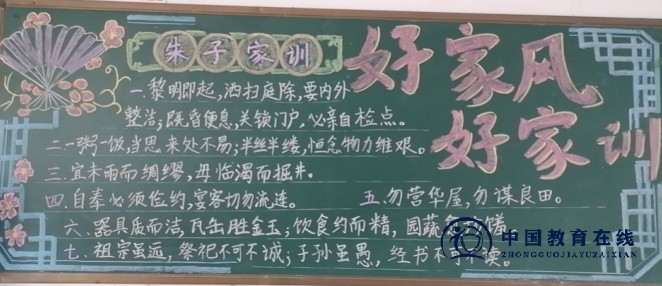 朱子家训
好家风
好家训
一.黎明即起,洒扫庭除,要内外
整洁;既昏便息,关锁门户,必亲自检点。
二.一粥一饭,当思来处不易;半丝半缕,恒念物力维艰。
三.宜未雨而绸缪,毋临渴而掘井。
四.自奉必须俭约,宴客切勿流连。 五.勿营华屋,勿谋良田。
六.器具质而洁,瓦缶胜金玉;饮食约而精,园蔬
七.祖宗虽远,祭祀不可不诚;子孙虽愚,经书不可不读。
中国教育在线
ZHONGGUOJIAOYUZAIXIAN